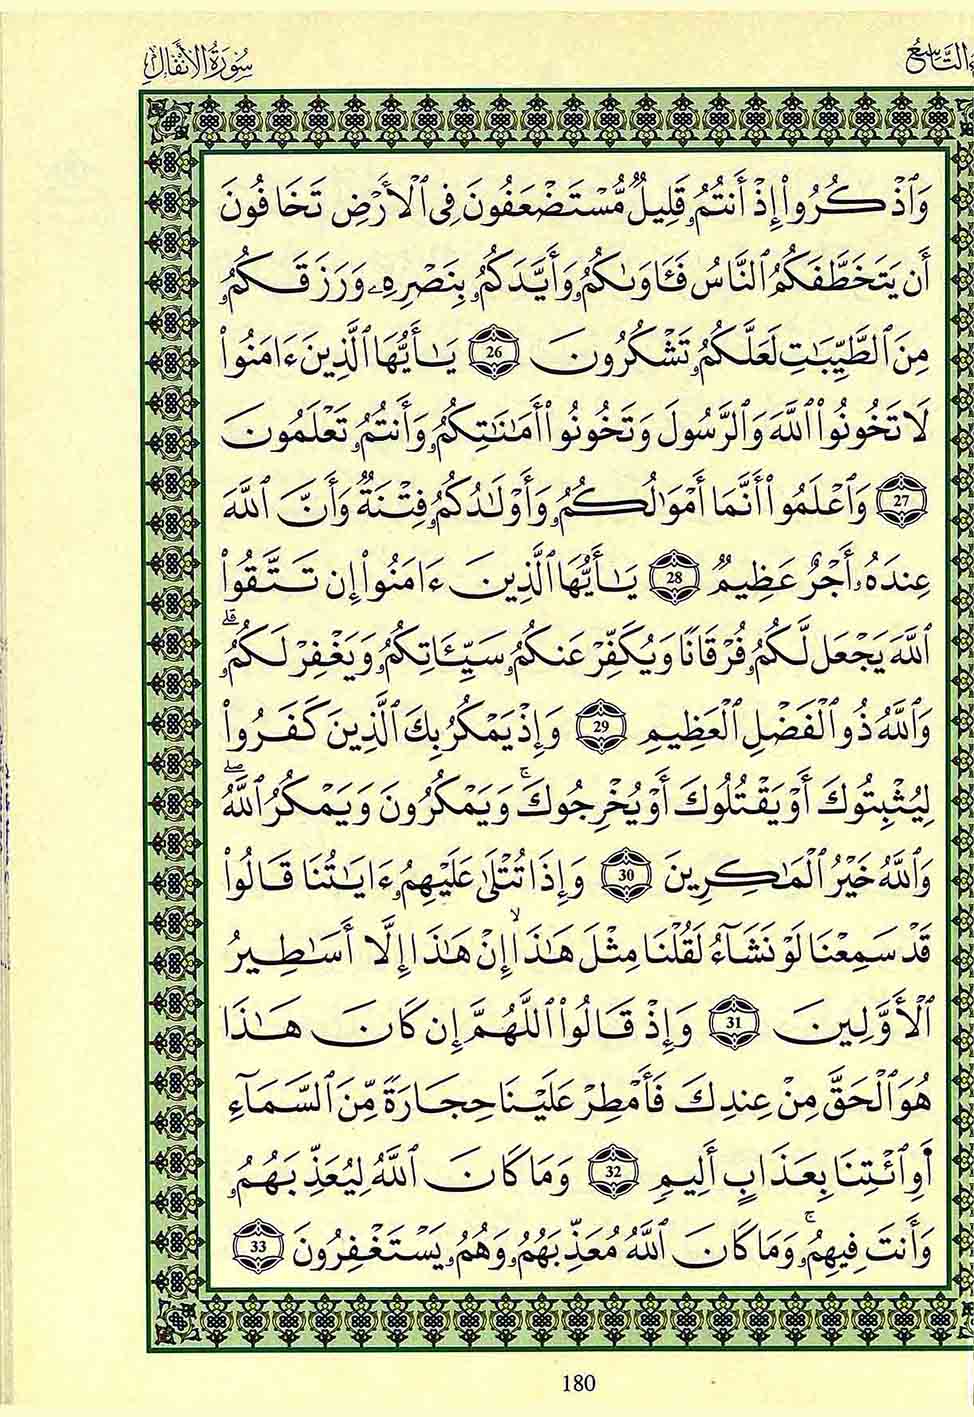 وَالتَّاسِعُ
سُورَةُ الأَنفَالِ
وَٱذۡكُرُوٓاْ إِذۡ أَنتُمُۥ قَلِيلٌ مُّسۡتَضۡعَفُونَ فِي ٱلۡأَرۡضِ تَخَافُونَ
أَن يَتَخَطَّفَكُمُ ٱلنَّاسُ فَـَٔاوَىٰكُمُۥ وَأَيَّدَكُمُۥ بِنَصۡرِهِۦ وَرَزَقَكُمُۥ
مِنَ ٱلطَّيِّبَٰتِ لَعَلَّكُمُۥ تَشۡكُرُونَ 26 يَٰٓأَيُّهَا ٱلَّذِينَ ءَامَنُواْ
لَا تَخُونُواْ ٱللَّهَ وَٱلرَّسُولَ وَتَخُونُوٓاْ أَمَٰنَٰتِكُمُۥ وَأَنتُمُۥ تَعۡلَمُونَ
27 وَٱعۡلَمُوٓاْ أَنَّمَآ أَمۡوَٰلُكُمُۥ وَأَوۡلَٰدُكُمُۥ فِتۡنَةٌ وَأَنَّ ٱللَّهَ
عِندَهُۥٓ أَجۡرٌ عَظِيمٌ 28 يَٰٓأَيُّهَا ٱلَّذِينَ ءَامَنُوٓاْ إِن تَتَّقُواْ
ٱللَّهَ يَجۡعَل لَّكُمُۥ فُرۡقَانًا وَيُكَفِّرۡ عَنكُمُۥ سَيِّـَٔاتِكُمُۥ وَيَغۡفِرۡ لَكُمُۥۗ
وَٱللَّهُ ذُو ٱلۡفَضۡلِ ٱلۡعَظِيمِ 29 وَإِذۡ يَمۡكُرُ بِكَ ٱلَّذِينَ كَفَرُواْ
لِيُثۡبِتُوكَ أَوۡ يَقۡتُلُوكَ أَوۡ يُخۡرِجُوكَۚ وَيَمۡكُرُونَ وَيَمۡكُرُ ٱللَّهُۖ
وَٱللَّهُ خَيۡرُ ٱلۡمَٰكِرِينَ 30 وَإِذَا تُتۡلَىٰ عَلَيۡهِمُۥٓ ءَايَٰتُنَا قَالُواْ
قَدۡ سَمِعۡنَا لَوۡ نَشَآءُ لَقُلۡنَا مِثۡلَ هَٰذَآۙ إِنۡ هَٰذَآ إِلَّآ أَسَٰطِيرُ
ٱلۡأَوَّلِينَ 31 وَإِذۡ قَالُواْ ٱللَّهُمَّ إِن كَانَ هَٰذَا
هُوَ ٱلۡحَقَّ مِنۡ عِندِكَ فَأَمۡطِرۡ عَلَيۡنَا حِجَارَةً مِّنَ ٱلسَّمَآءِ
أَوِ ٱئۡتِنَا بِعَذَابٍ أَلِيمٍ 32 وَمَا كَانَ ٱللَّهُ لِيُعَذِّبَهُمُۥ
وَأَنتَ فِيهِمُۥۚ وَمَا كَانَ ٱللَّهُ مُعَذِّبَهُمُۥ وَهُمُۥ يَسۡتَغۡفِرُونَ 33
180